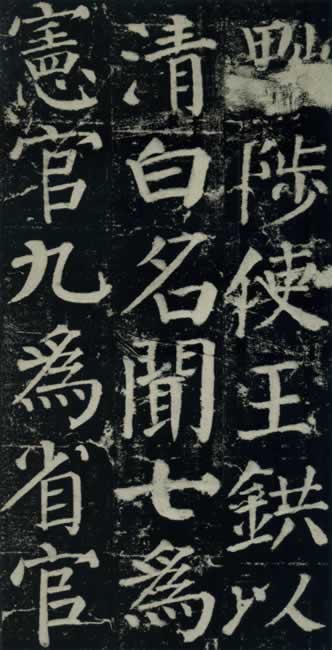 陟使王鉷以
清白名聞七為
憲官九為省官